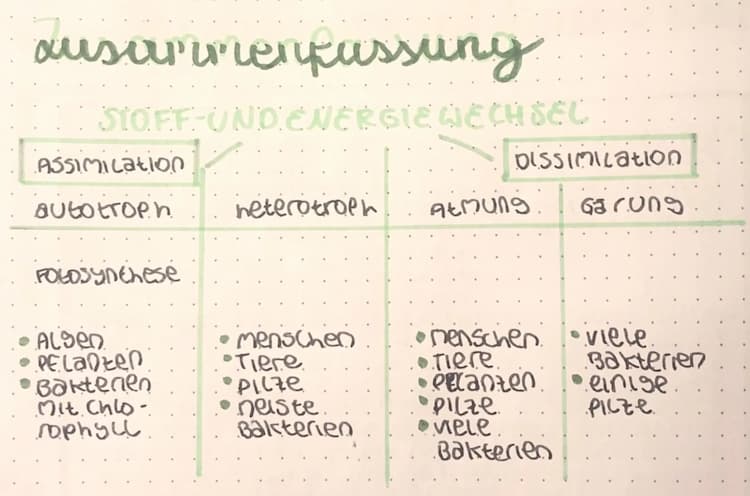 Zusammenfassung
STOFF-UND ENERGIEWECHSEL
ASSIMILATION
DISSIMILATION
autotroph
heterotroph
Atmung
Gärung
Fotosynthese
• Algen
• Pflanzen
• Bakterien
mit Chlo-
rophyll
• Menschen
• Tiere
• Pilze
• meiste
Bakterien
• Menschen
• Tiere
• Pflanzen
• Pilze
• viele
Bakterien
• viele
Bakterien
• einige
Pilze